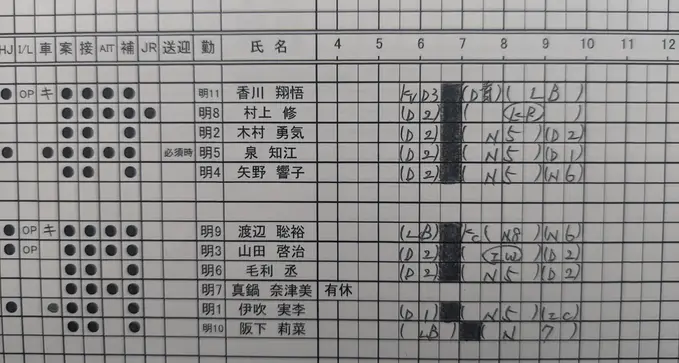 HJ I/L 車 案 接 AIT 補 JR 送迎 勤 氏名 4 5 6 7 8 9 10 11 12
OP キ 明11 香川 翔悟 D3 (LB)
明8 村上 修 (D2) (KR)
明2 木村 勇気 (D2) (N5) (D2)
必須時 明5 泉 知江 (D2) (N5) (D1)
明4 矢野 響子 (D2) (N5) (N6)
OP キ 明9 渡辺 聡裕 (LB) (N8) (N6)
OP 明3 山田 啓治 (D2) (IW) (D2)
明6 毛利 丞 (D2) (N5) (D2)
明7 真鍋 奈津美 有休
明1 伊吹 実李 (D1) (N5) (IC)
明10 阪下 莉菜 (LB) (N7)